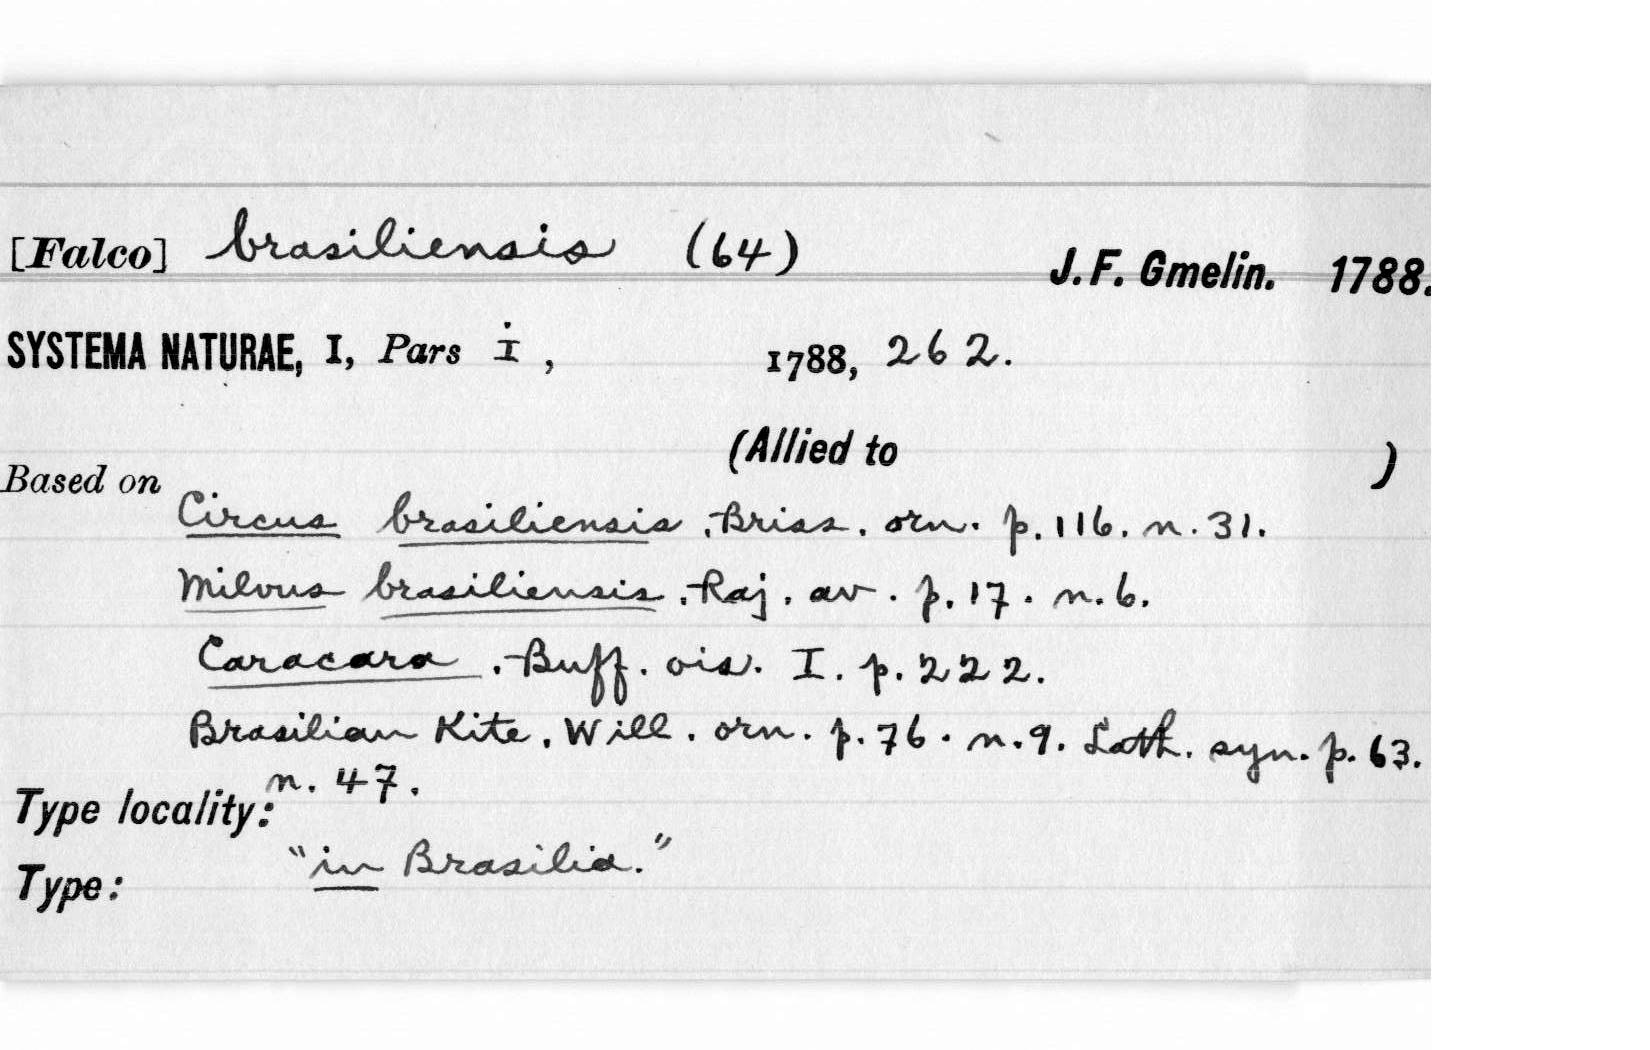 [Falco] brasiliensis (64) J. F. Gmelin. 1788.
SYSTEMA NATURAE, I, Pars i , 1788, 262.
(Allied to )
Based on
Circus brasiliensis. Briss. orn. p. 116. n. 31.
Milvus brasiliensis. Raj. av. p. 17. n. 6.
Caracara. Buff. ois. I. p. 222.
Brasilian Kite. Will. orn. p. 76. n. 9. Lath. syn. p. 63.
n. 47.
Type locality:
"in Brasilia."
Type: